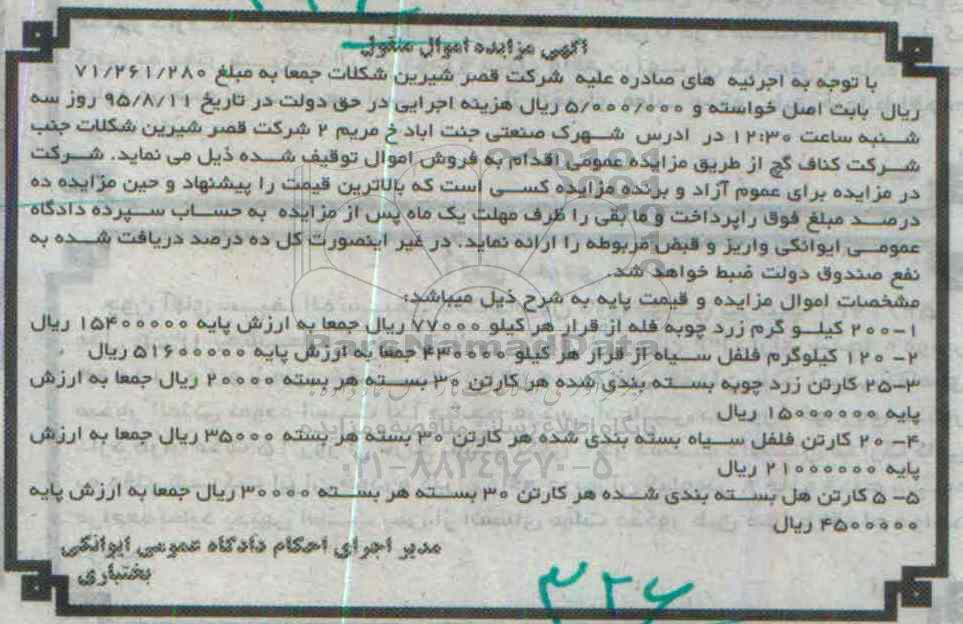 آگهی مزایده اموال منقول
با توجه به اجرئیه های صادره علیه شرکت قصر شیرین شکلات جمعا به مبلغ ۷۱/۲۶۱/۲۸۰
ریال بابت اصل خواسته و ۵/۰۰۰/۰۰۰ ریال هزینه اجرایی در حق دولت در تاریخ ۹۵/۸/۱۱ روز سه
شنبه ساعت ۱۲:۳۰ در ادرس شهرک صنعتی جنت اباد خ مریم ۲ شرکت قصر شیرین شکلات جنب
شرکت کناف گچ از طریق مزایده عمومی اقدام به فروش اموال توقیف شده ذیل می نماید. شرکت
در مزایده برای عموم آزاد و برنده مزایده کسی است که بالاترین قیمت را پیشنهاد و حین مزایده ده
درصد مبلغ فوق راپرداخت و ما بقی را ظرف مهلت یک ماه پس از مزایده به حساب سپرده دادگاه
عمومی ایوانکی واریز و قبض مربوطه را ارائه نماید. در غیر اینصورت کل ده درصد دریافت شده به
نفع صندوق دولت ضبط خواهد شد.
مشخصات اموال مزایده و قیمت پایه به شرح ذیل میباشد:
۱-۲۰۰ کیلو گرم زرد چوبه فله از قرار هر کیلو ۷۷۰۰۰ ریال جمعا به ارزش پایه ۱۵۴۰۰۰۰۰ ریال
۲- ۱۲۰ کیلوگرم فلفل سیاه از قرار هر کیلو ۴۳۰۰۰۰ جمعا به ارزش پایه ۵۱۶۰۰۰۰۰ ریال
۳-۲۵ کارتن زرد چوبه بسته بندی شده هر کارتن ۳۰ بسته هر بسته ۲۰۰۰۰ ریال جمعا به ارزش
پایه ۱۵۰۰۰۰۰۰ ریال
۴- ۲۰ کارتن فلفل سیاه بسته بندی شده هر کارتن ۳۰ بسته هر بسته ۳۵۰۰۰ ریال جمعا به ارزش
پایه ۲۱۰۰۰۰۰۰ ریال
۵- ۵ کارتن هل بسته بندی شده هر کارتن ۳۰ بسته هر بسته ۳۰۰۰۰ ریال جمعا به ارزش پایه
۴۵۰۰۰۰۰ ریال
مدیر اجرای احکام دادگاه عمومی ایوانکی
بختیاری
ParsNamadData
۰۲۱-۸۸۳۴۹۶۷۰-۵
۳۲۶